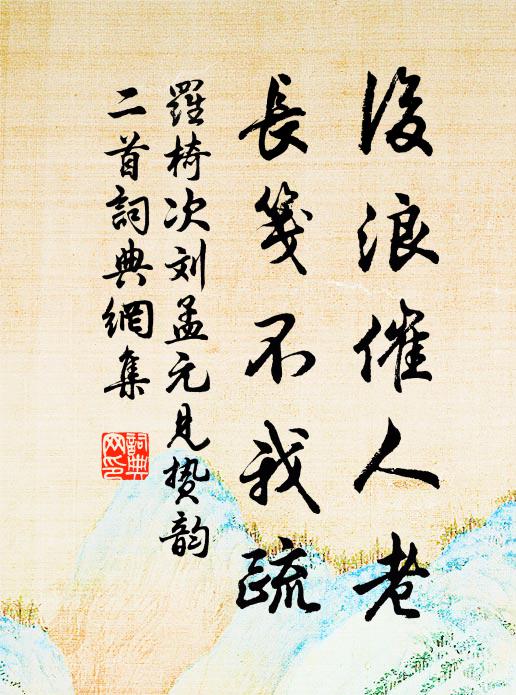 後浪催人老
長箋不我疏
羅椅次刘孟元見贽韵
二首詞典網集
詞典网印